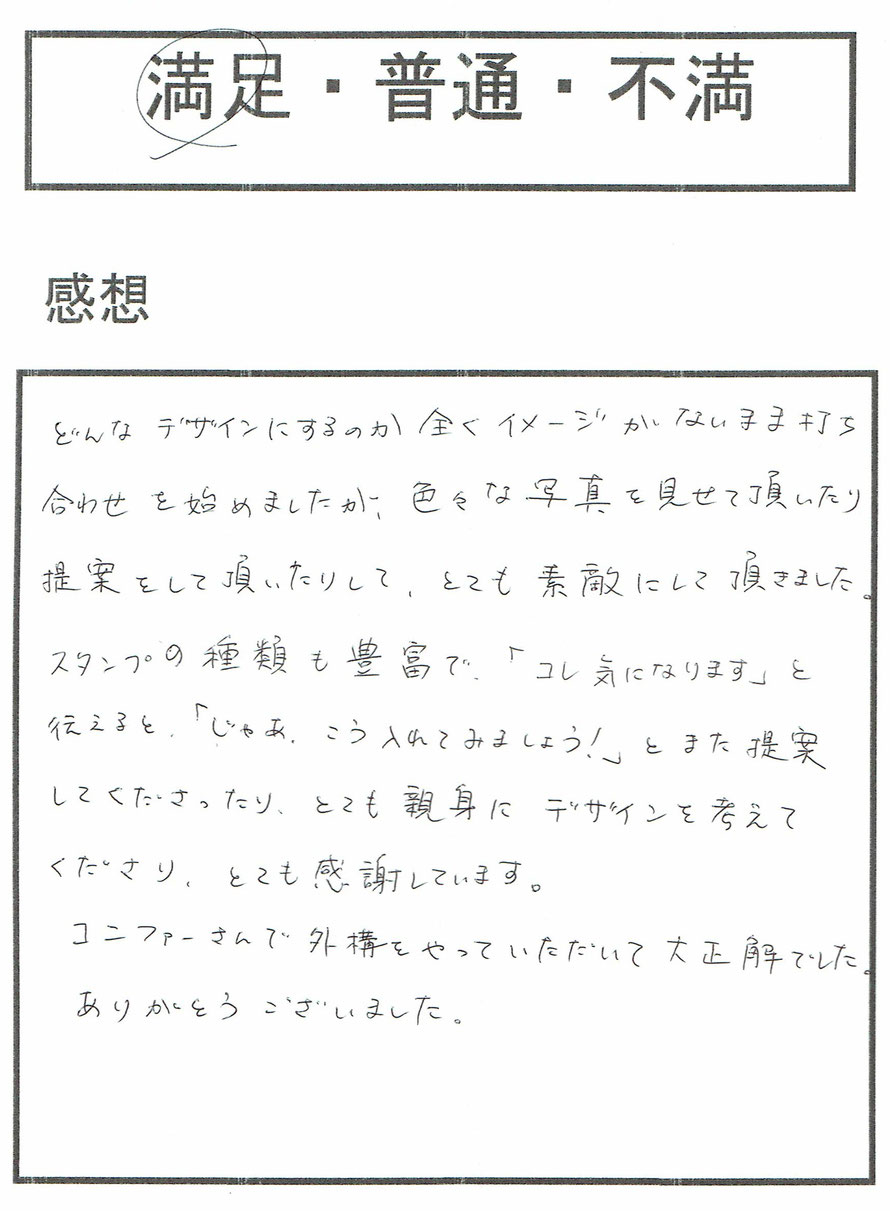 満足・普通・不満
感想
どんなデザインにするのか全くイメージがないまま打ち
合わせを始めましたが、色々な写真を見せて頂いたり
提案をして頂いたりして、とても素敵にして頂きました。
スタンプの種類も豊富で、「コレ気になります」と
伝えると、「じゃあ、こう入れてみましょう!」とまた提案
してくださったり、とても親身にデザインを考えて
くださり、とても感謝しています。
コニファーさんで外構をやっていただいて大正解でした。
ありがとうございました。